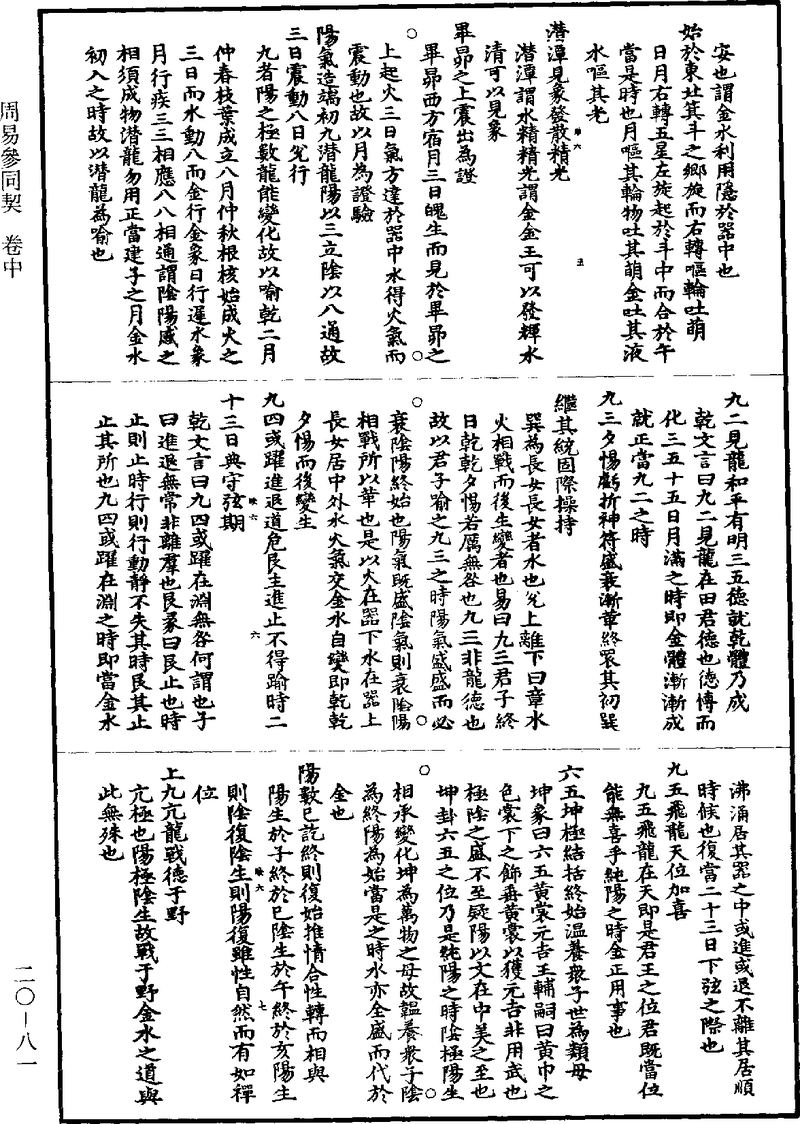 周易參同契 卷中
安也謂金水利用隱於器中也
始於東北箕斗之鄉旋而右轉嘔輪吐萌
日月右轉五星左旋起於斗中而合於午
當是時也月嘔其輪物吐其萌金吐其液
水嘔其老
潛潭見象發散精光
潛潭謂水精精光謂金金王可以發輝水
清可以見象
畢昴之上震出為證
畢昴西方宿月三日魄生而見於畢昴之
上起火三日氣方達於器中水得火氣而
震動也故以月為證驗
陽氣造端初九潛龍陽以三立陰以八通故
三日震動八日兌行
九者陽之極數龍能變化故以喻乾二月
仲春枝葉成立八月仲秋根核始成火之
三日而水動八而金行金象日行遲水象
月行疾三三相應八八相通謂陰陽感之
相須成物潛龍勿用正當建子之月金水
初入之時故以潛龍為喻也
九二見龍和平有明三五德就乾體乃成
乾文言曰九二見龍在田君德也德博而
化三五十五日月滿之時即金體漸漸成
就正當九二之時
九三夕惕虧折神符盛衰漸革終眾其初巽
繼其統固際操持
巽為長女長女者水也兌上離下曰章水
火相戰而後生變者也易曰九三君子終
日乾乾夕惕若厲無咎也九三非龍德也
故以君子喻之九三之時陽氣盛盛而必
衰陰陽終始也陽氣既盛陰氣則衰陰陽
相戰所以革也是以火在器下水在器上
長女居中外水火氣交金水自變即乾乾
夕惕而後變生
九四或躍進退道危艮主進止不得踰時二
十三日典守弦期
乾文言曰九四或躍在淵無咎何謂也子
曰進退無常非離羣也艮彖曰艮止也時
止則止時行則行動靜不失其時艮其止
止其所也九四或躍在淵之時即當金水
沸涌居其器之中或進或退不離其居順
時候也復當二十三日下弦之際也
九五飛龍天位加喜
九五飛龍在天即是君王之位君既當位
能無喜乎純陽之時金正用事也
六五坤極結括終始溫養眾子世為類母
坤象曰六五黃裳元吉王輔嗣曰黃巾之
色裳下之飾垂黃裳以獲元吉非用武也
極陰之盛不至疑陽以文在中美之至也
坤卦六五之位乃是純陽之時陰極陽生
相承變化坤為萬物之母故韞養眾子陰
為終陽為始當是之時水亦全盛而代於
金也
陽數已訖終則復始推情合性轉而相與
陽生於子終於巳陰生於午終於亥陽生
則陰復陰生則陽復雖性自然而有如禪
位
上九亢龍戰德于野
亢極也陽極陰生故戰于野金水之道與
此無殊也
二〇－八一